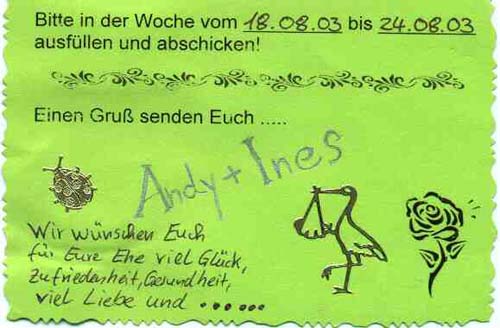 Bitte in der Woche vom 18.08.03 bis 24.08.03
ausfüllen und abschicken!
Einen Gruß senden Euch .....
Andy + Ines
Wir wünschen Euch
für Eure Ehe viel Glück,
Zufriedenheit, Gesundheit,
viel Liebe und ......